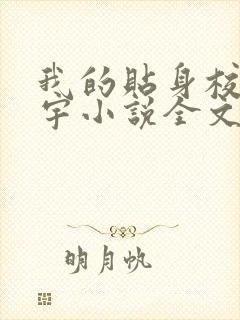 我的贴身校
宇小说全文
明月帆